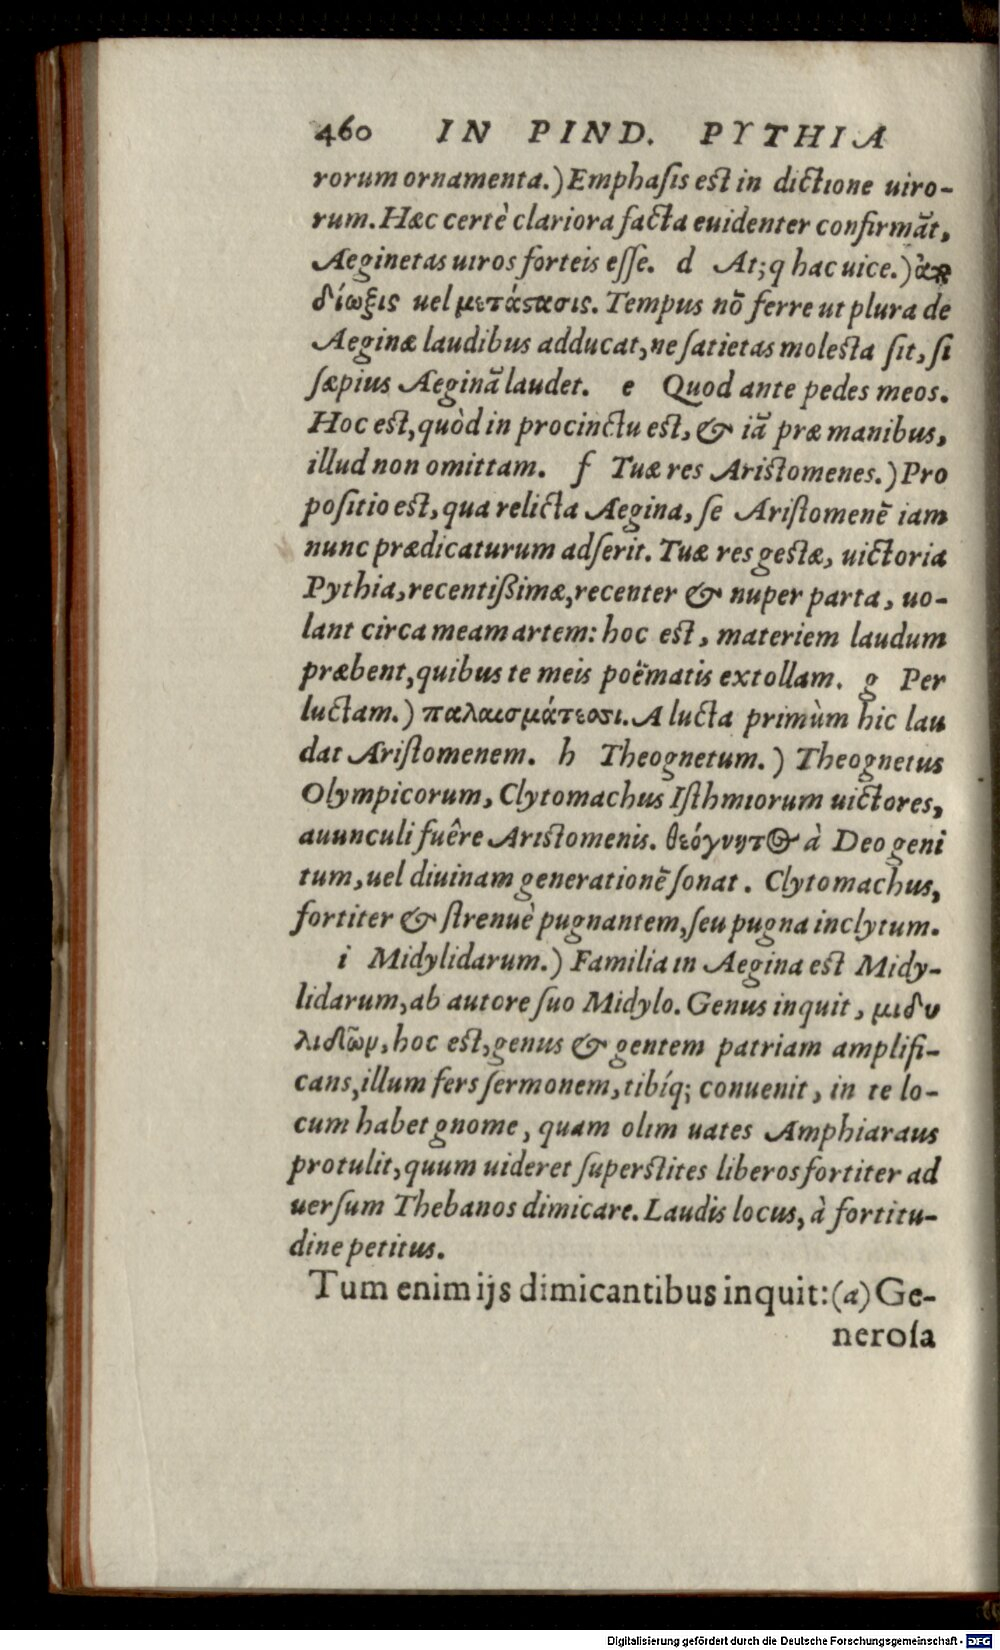 460 IN PIND. PYTHIA
rorum ornamenta.) Emphaſis est in dictione uiro-
rum. Hæc certè clariora facta euidenter confirmāt,
Aeginetas uiros forteis eſſe. d At;q hac uice.)
δίωξις uel μετάϛασις. Tempus nō ferre ut plura de
Aeginæ laudibus adducat, ne ſatietas molesta ſit, ſi
ſæpius Aeginā laudet. e Quod ante pedes meos.
Hoc est, quòd in procinctu est, & iā præ manibus,
illud non omittam. f Tuæ res Aristomenes.) Pro
poſitio est, qua relicta Aegina, ſe Ariſtomenē iam
nunc prædicaturum adſerit. Tuæ res gestæ, uictoria
Pythia, recentiſſimæ, recenter & nuper parta, uo-
lant circa meam artem: hoc est, materiem laudum
præbent, quibus te meis poëmatis extollam. g Per
luctam.) παλαισμάτεσσι. A lucta primùm hic lau
dat Ariſtomenem. h Theognetum.) Theognetus
Olympicorum, Clytomachus Iſthmiorum uictores,
auunculi fuêre Aristomenis. θεόγνητος à Deo geni
tum, uel diuinam generationē ſonat. Clytomachus,
fortiter & ſtrenuè pugnantem, ſeu pugna inclytum.
i Midylidarum.) Familia in Aegina est Midy-
lidarum, ab autore ſuo Midylo. Genus inquit, μιδυ
λιδῶν, hoc est, genus & gentem patriam amplifi-
cans, illum fers ſermonem, tibíq; conuenit, in te lo-
cum habet gnome, quam olim uates Amphiaraus
protulit, quum uideret ſuperstites liberos fortiter ad
uerſum Thebanos dimicare. Laudis locus, à fortitu-
dine petitus.
Tum enim ijs dimicantibus inquit: (a) Ge-
neroſa
Digitalisierung gefördert durch die Deutsche Forschungsgemeinschaft - DFG